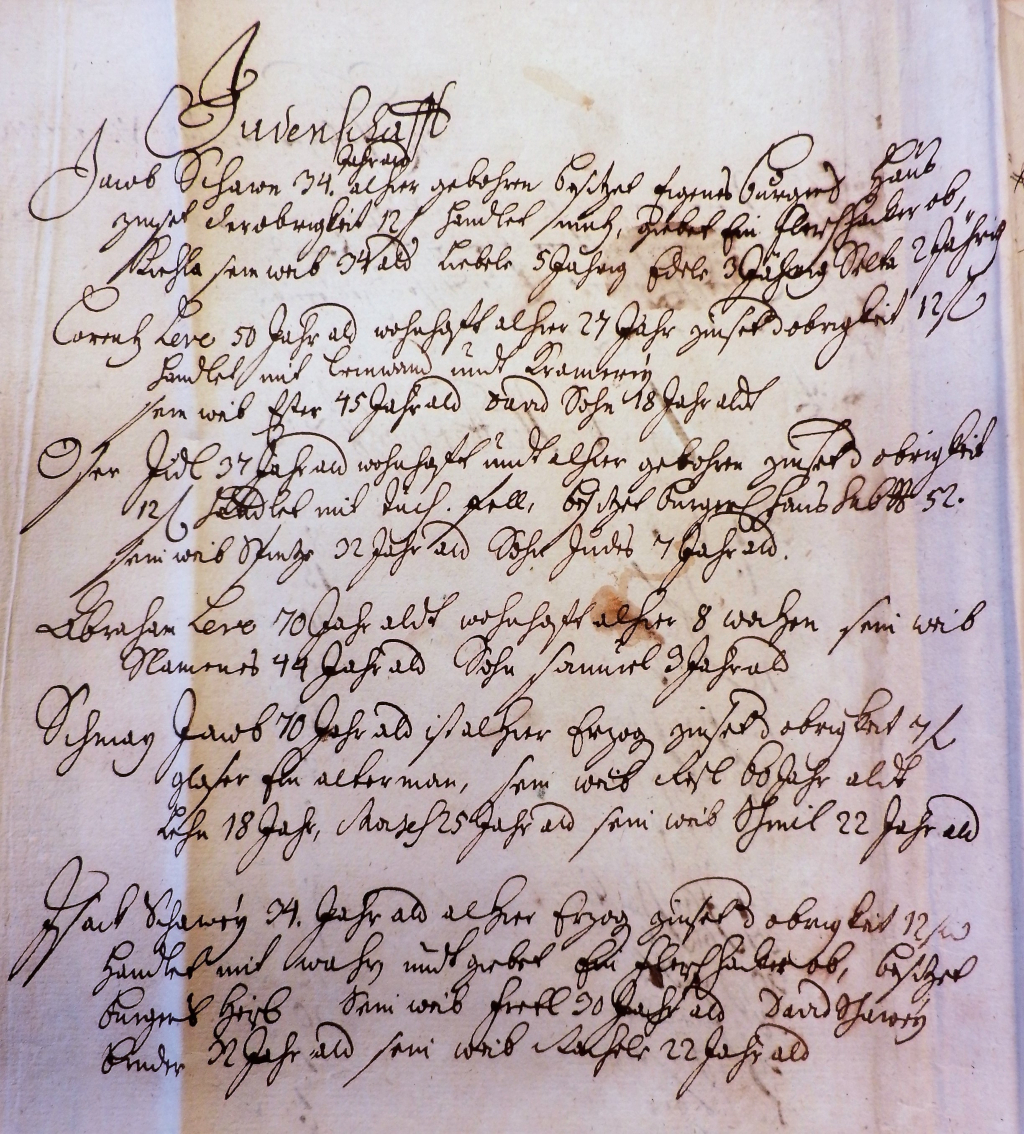 Judenschafft
Jahr ald
Jacob Schawe 34. alhier gebohren besitzet Eigenes burgers Haus
zinset der obrigkeit 12 f handlet giebet Ein fleischhacker ob,
Riehla sein weib 34 ald Liebele 5 Jährig Edele 3 Jährig Selta 2 Jährig
Lorentz Leve 50 Jahr ald wohnhafft alhier 27 Jahr zinset d obrigkeit 12 f
handlet mit leinwand undt Kramerey
sein weib Ester 45 Jahr ald David Sohn 18 Jahr aldt
Oser Jidl 37 Jahr ald wohnhafft undt alhier gebohren zinset d obrigkeit
12 f handlet mit tuch. fell, besitzet burgers haus 52.
sein weib 32 Jahr ald Sohn Judes 7 Jahr ald.
Abraham Leve 70 Jahr aldt wohnhafft alhier 8 wochen sein weib
44 Jahr ald Sohn samuel 3 Jahr ald
Schmay Jacob 70 Jahr ald ist alhier Erzog zinset d obrigkeit 7 f
glaser Ein alter man, sein weib Resl 66 Jahr aldt
18 Jahr, Mojses 25 Jahr ald sein weib Schmil 22 Jahr ald
Isack Schawey 34. Jahr ald alhier Erzog zinset d obrigkeit 12
handlet mit undt giebet Ein fleischhacker ob, besitzet
burgers Sein weib Fretl 30 Jahr ald David Schawey
bruder 32 Jahr ald sein weib Rachele 22 Jahr ald